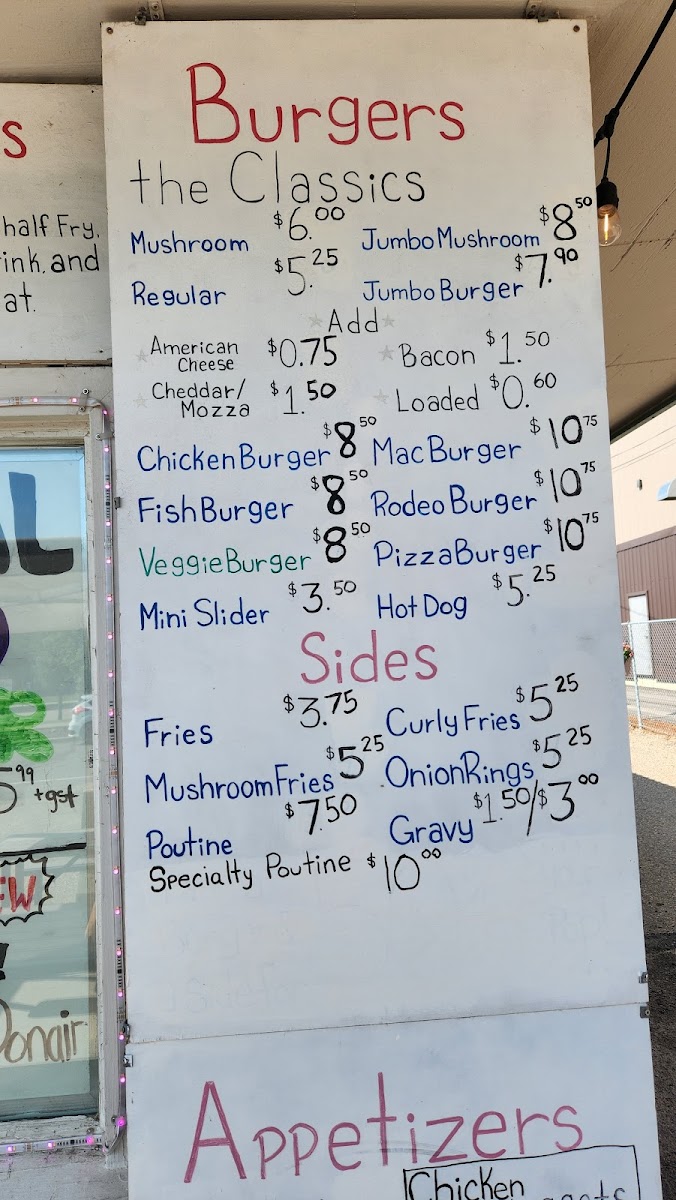 s
half Fry,
ink, and
at.
Burgers
the Classics
Mushroom $6.00 Jumbo Mushroom $8.50
Regular $5.25 Jumbo Burger $7.90
Add
American Cheese $0.75 Bacon $1.50
Cheddar/ Mozza $1.50 Loaded $0.60
Chicken Burger $8 50 Mac Burger $10 75
Fish Burger $8 50 Rodeo Burger $10 75
Veggie Burger $8 50 Pizza Burger $10 75
Mini Slider $3.50 Hot Dog $5.25
Sides
Fries $3.75 Curly Fries $5 25
Mushroom Fries $5 25 Onion Rings $5 25
Poutine $7.50 Gravy $1.50/$3 00
Specialty Poutine $10 00
Appetizers
Chicken
AL
5 99 +gst
EW
!
Donair